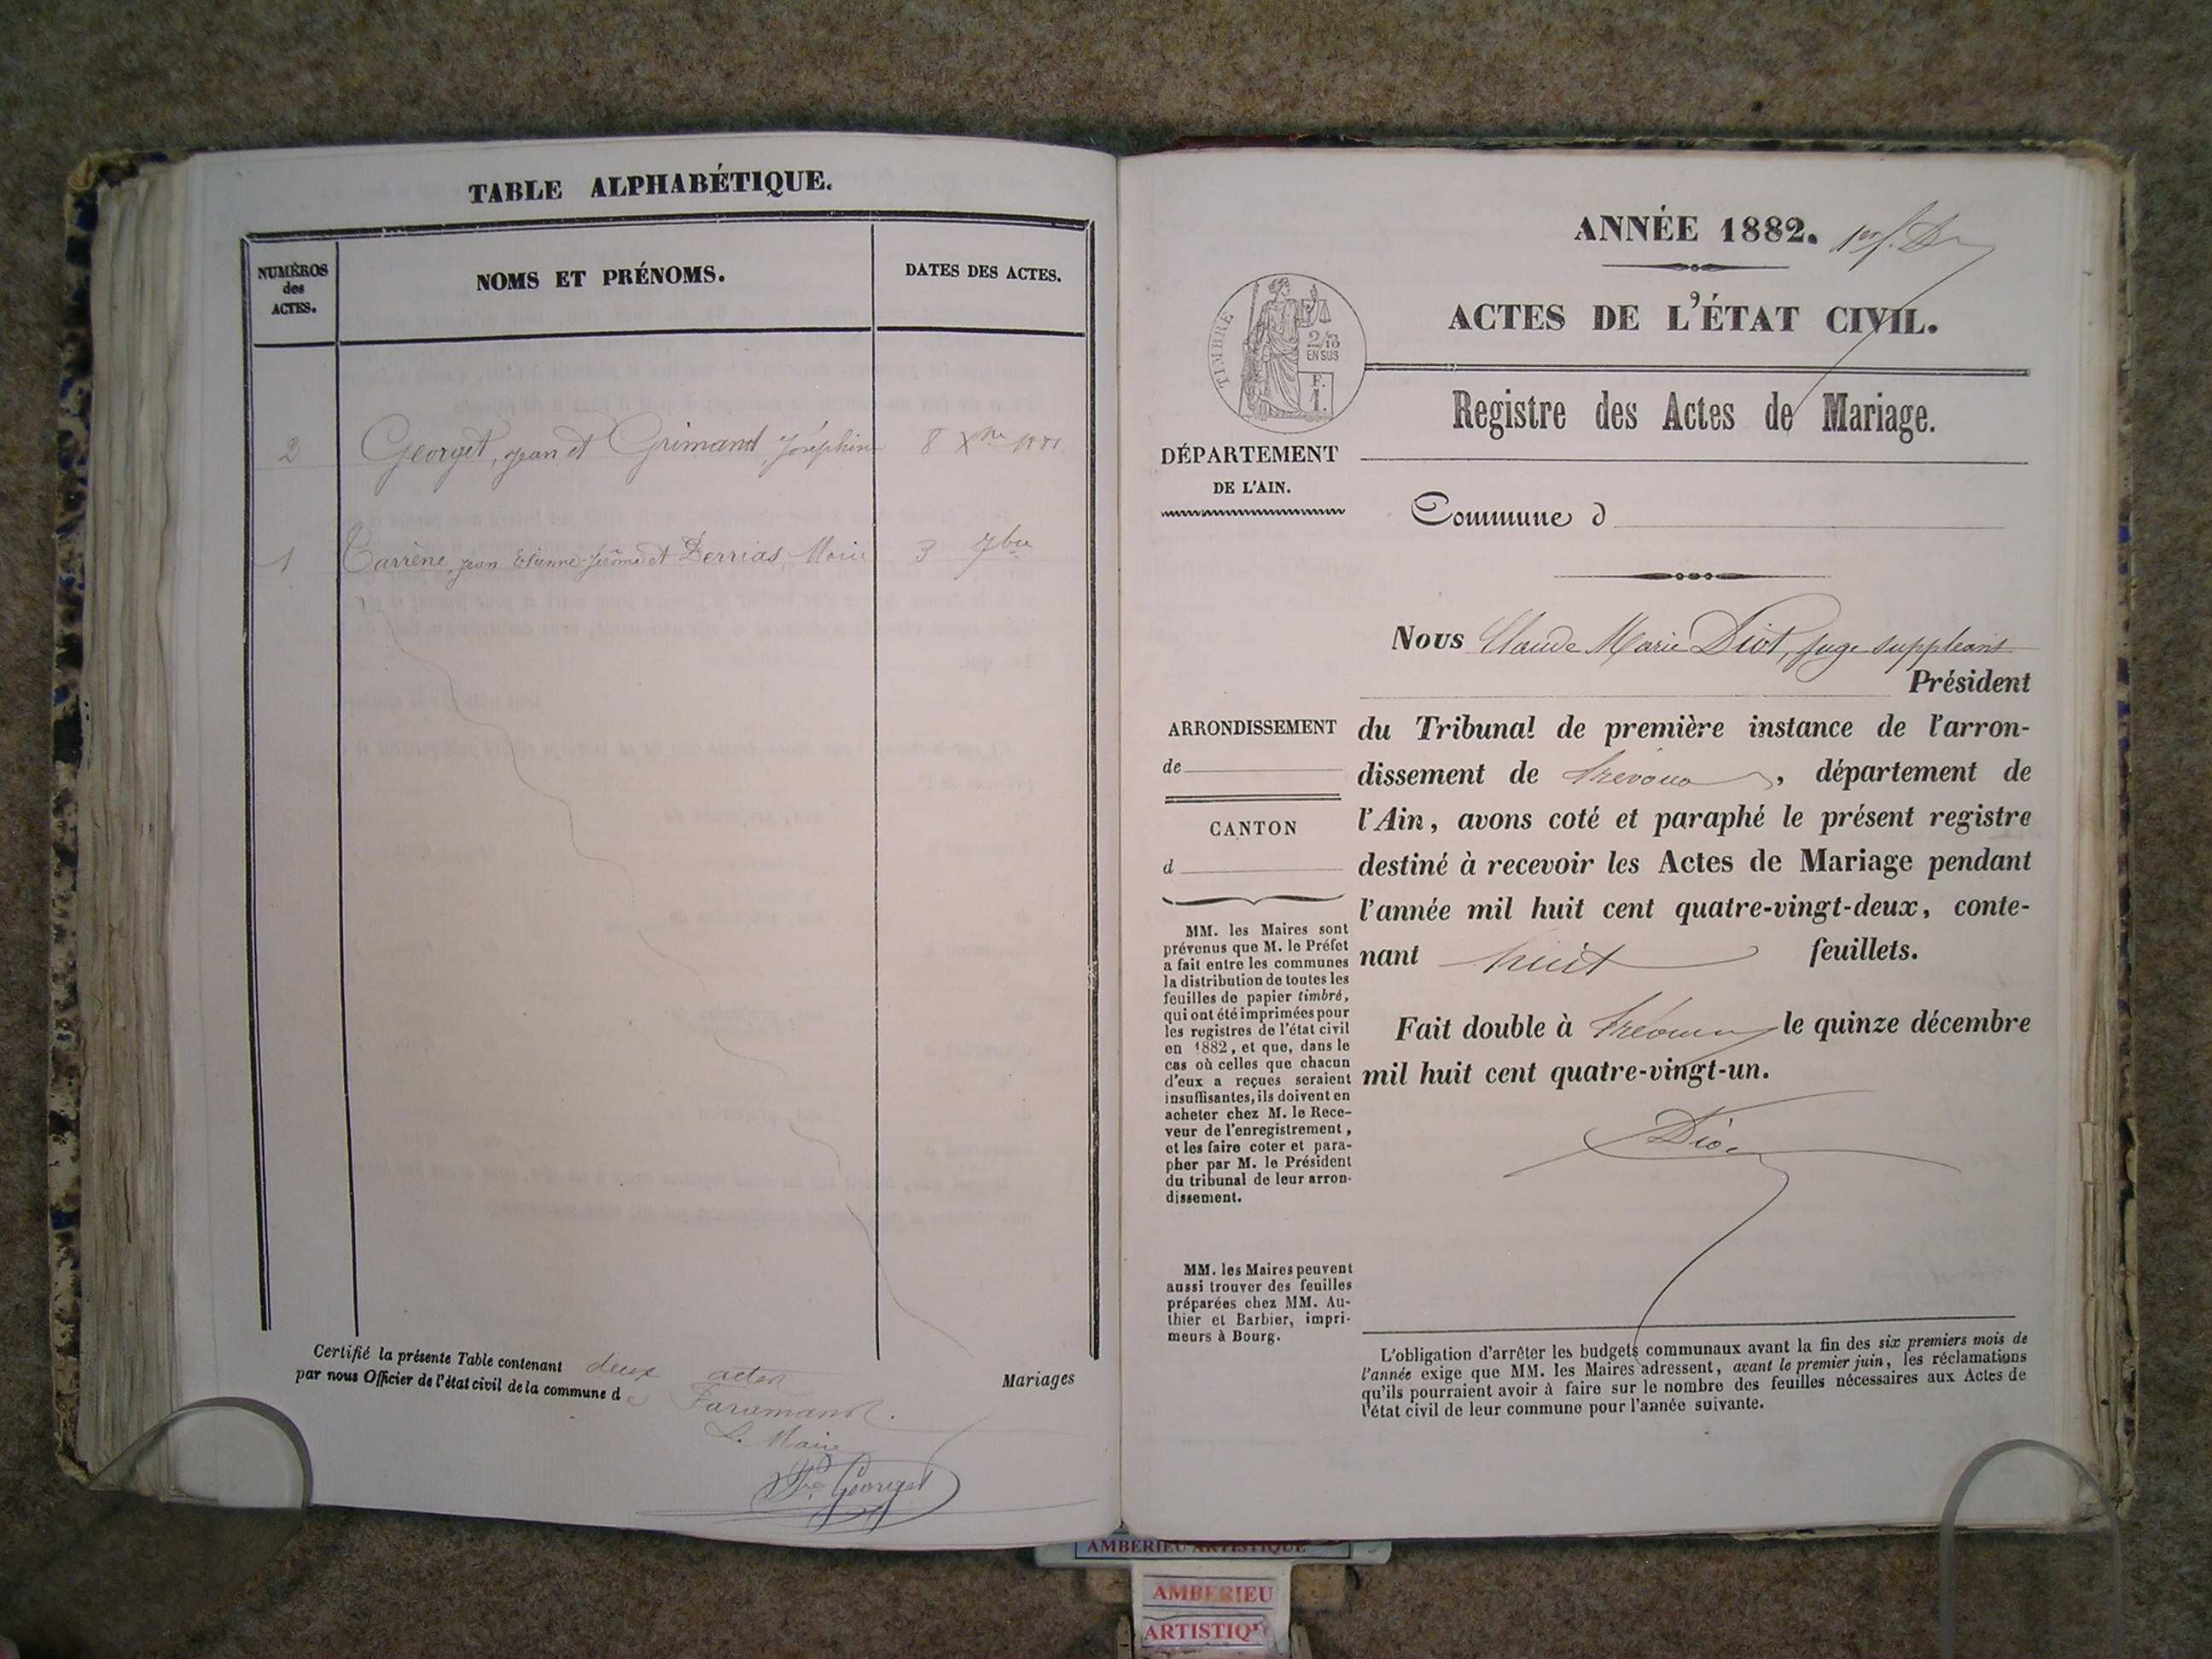 TABLE ALPHABÉTIQUE.
NUMÉROS
des
ACTES.
NOMS ET PRÉNOMS.
DATES DES ACTES.
2 Georget, Jean et Grimand Joséphine 8 Xbre 1881.
1 Carrène, Jean Etienne Jérôme et Derrias Marie 3 7bre
Certifié la présente Table contenant deux actes Mariages
par nous Officier de l'état civil de la commune de Faramans.
Le Maire
Georget
ANNÉE 1882.
ACTES DE L'ÉTAT CIVIL.
TIMBRE
2/10
EN SUS
F.
1.
Registre des Actes de Mariage.
DÉPARTEMENT
DE L'AIN.
Commune d
Nous Claude Marie Diot, juge suppléant
Président
ARRONDISSEMENT
de
CANTON
d
du Tribunal de première instance de l'arron-
dissement de Trévoux, département de
l'Ain, avons coté et paraphé le présent registre
destiné à recevoir les Actes de Mariage pendant
l'année mil huit cent quatre-vingt-deux, conte-
nant huit feuillets.
Fait double à Trévoux le quinze décembre
mil huit cent quatre-vingt-un.
Diot
MM. les Maires sont
prévenus que M. le Préfet
a fait entre les communes
la distribution de toutes les
feuilles de papier timbré,
qui ont été imprimées pour
les registres de l'état civil
en 1882, et que, dans le
cas où celles que chacun
d'eux a reçues seraient
insuffisantes, ils doivent en
acheter chez M. le Rece-
veur de l'enregistrement,
et les faire coter et para-
pher par M. le Président
du tribunal de leur arron-
dissement.
MM. les Maires peuvent
aussi trouver des feuilles
préparées chez MM. Au-
thier et Barbier, impri-
meurs à Bourg.
L'obligation d'arrêter les budgets communaux avant la fin des six premiers mois de
l'année exige que MM. les Maires adressent, avant le premier juin, les réclamations
qu'ils pourraient avoir à faire sur le nombre des feuilles nécessaires aux Actes de
l'état civil de leur commune pour l'année suivante.
AMBERIEU ARTISTIQUE
AMBERIEU
ARTISTIQU